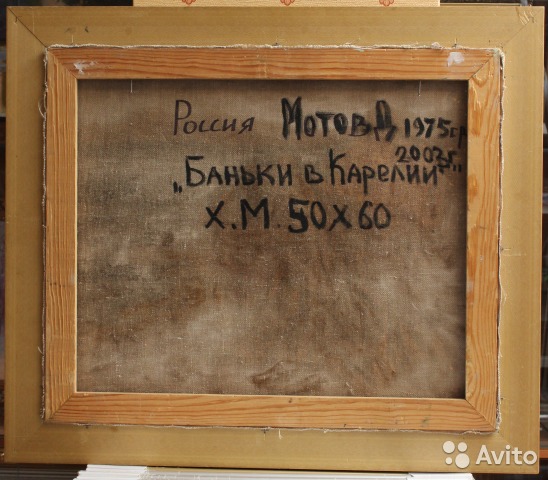 Россия Мотов Д 1975г.р.
2003г.
„Баньки в Карелии"
Х.М. 50Х60
Avito